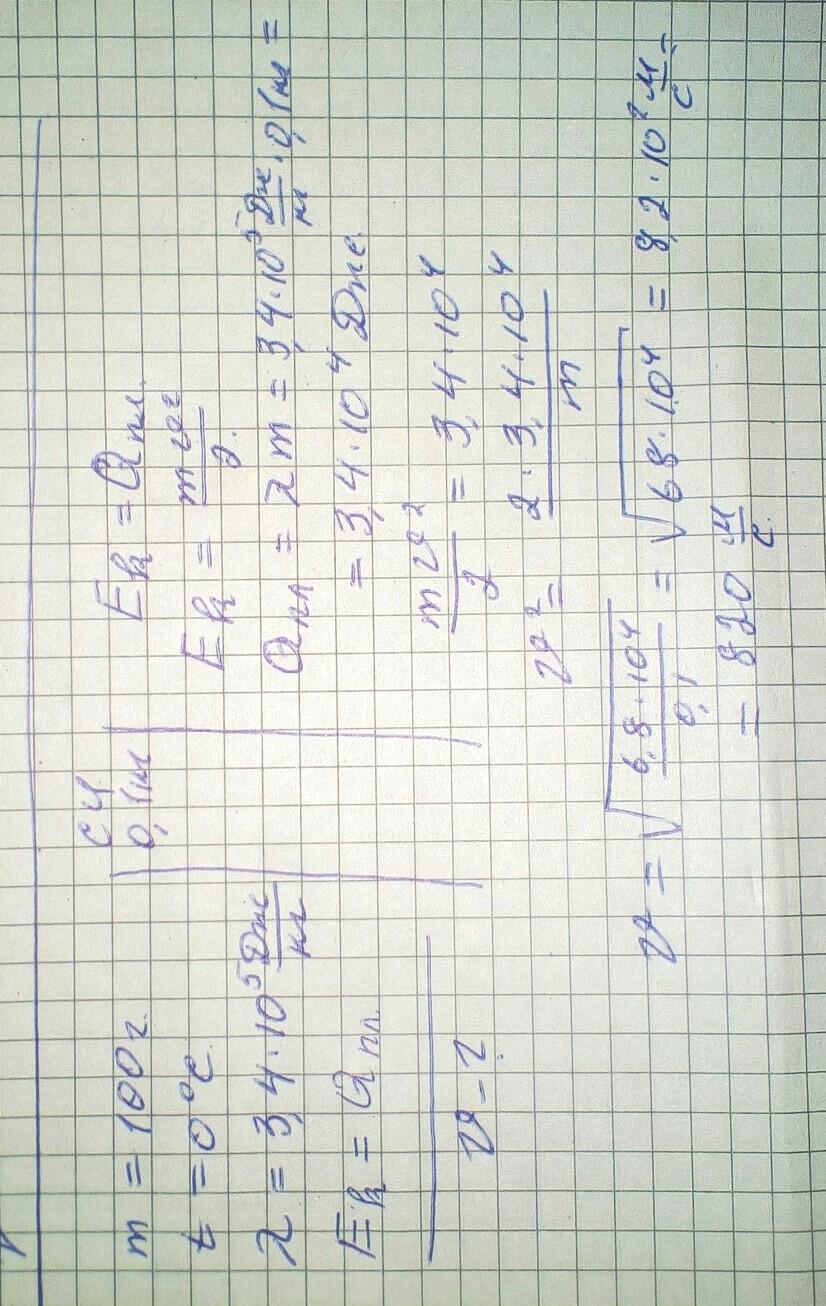 m = 100г.
t = 0°C.
λ = 3,4·10⁵ Дж/кг
Eк = Qпл.
v - ?
СИ
0,1кг
Eк = Qпл.
Eк = mv²/2.
Qпл = λm = 3,4·10⁵ Дж/кг · 0,1кг =
= 3,4·10⁴ Дж.
mv²/2 = 3,4·10⁴
v² = 2·3,4·10⁴/m
v = √(6,8·10⁴/0,1) = √(68·10⁴) = 8,2·10² м/с =
= 820 м/с.